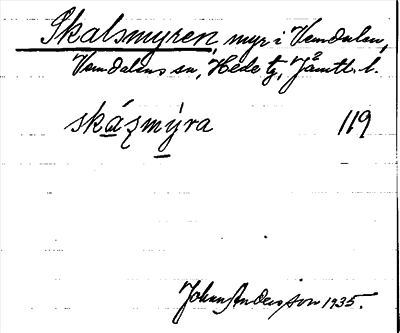 Skalsmyren, myr i Vemdalen,
Vemdalens sn, Hede tg, Jämtl. l.
skázmýra 119
Johan Andersson 1935.